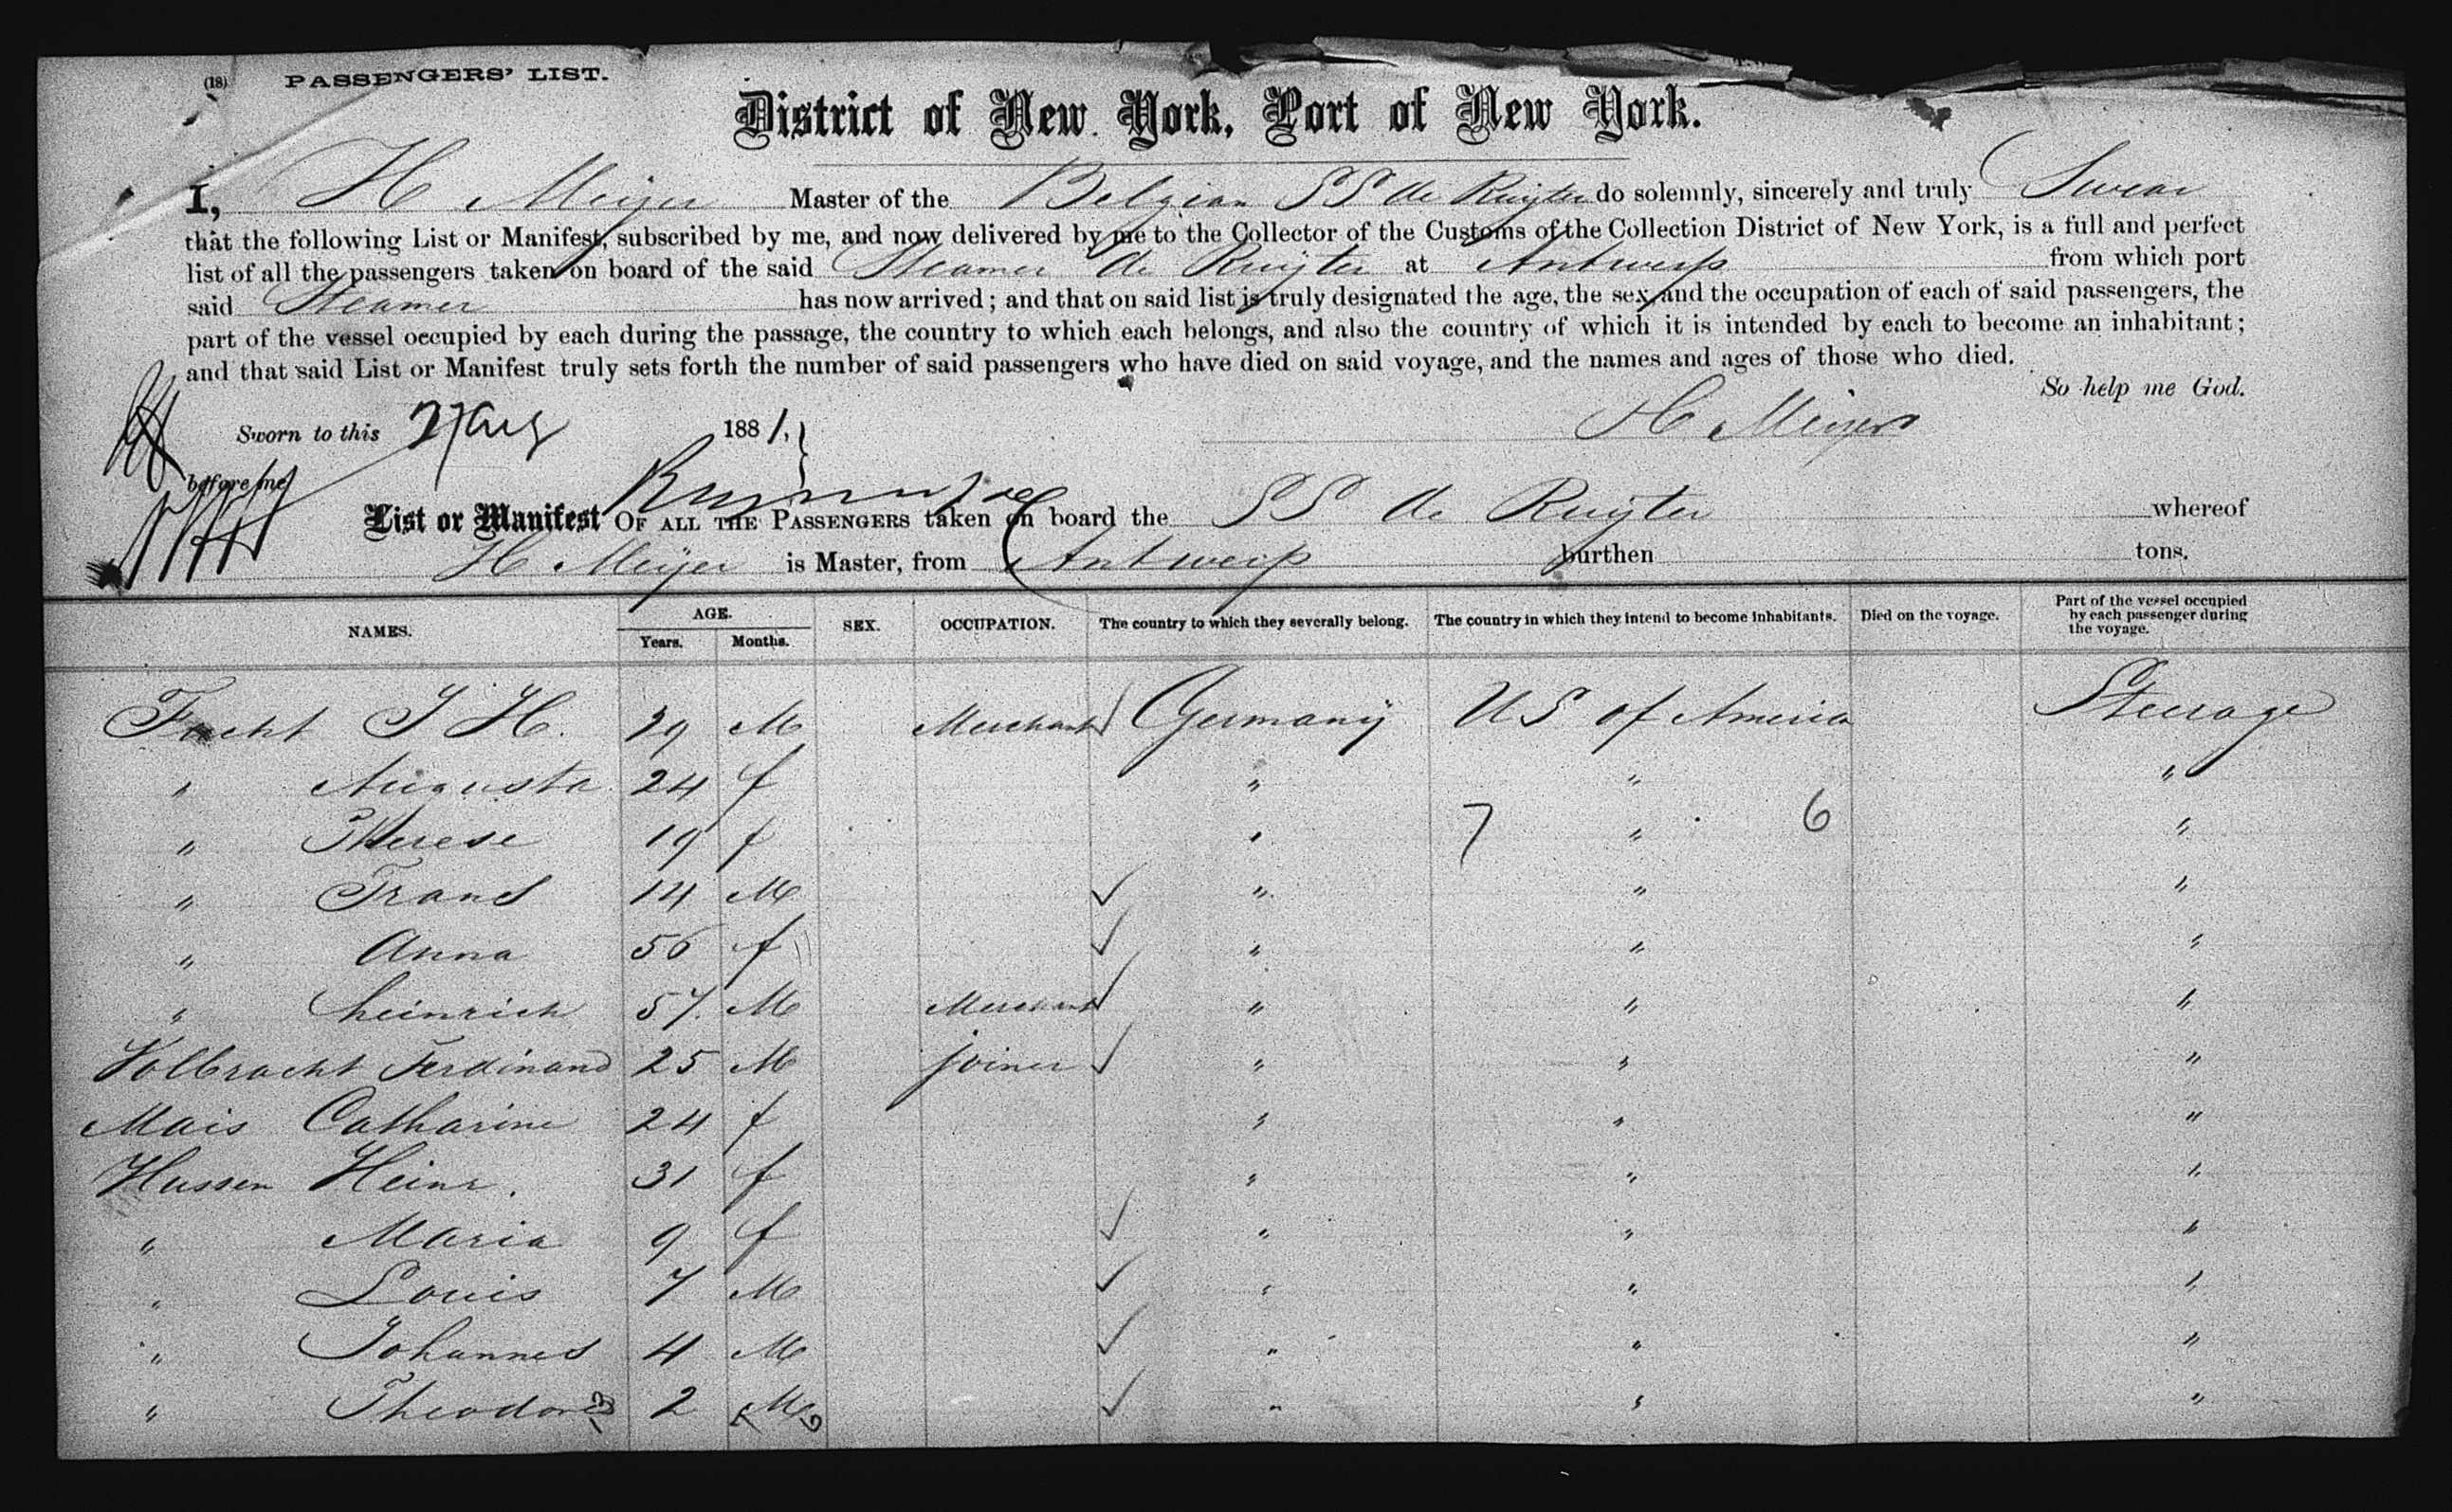 (18) PASSENGERS' LIST.
District of New York, Port of New York.
I, H Meijer Master of the Belgian SS de Ruyter do solemnly, sincerely and truly Swear
that the following List or Manifest, subscribed by me, and now delivered by me to the Collector of the Customs of the Collection District of New York, is a full and perfect
list of all the passengers taken on board of the said Steamer de Ruyter at Antwerp from which port
said Steamer has now arrived; and that on said list is truly designated the age, the sex, and the occupation of each of said passengers, the
part of the vessel occupied by each during the passage, the country to which each belongs, and also the country of which it is intended by each to become an inhabitant;
and that said List or Manifest truly sets forth the number of said passengers who have died on said voyage, and the names and ages of those who died.
So help me God.
Sworn to this 27 Aug 1881, H Meijer
before me
List or Manifest OF ALL THE PASSENGERS taken on board the SS de Ruyter whereof
H Meijer is Master, from Antwerp burthen tons.
NAMES. AGE. Years. Months. SEX. OCCUPATION. The country to which they severally belong. The country in which they intend to become inhabitants. Died on the voyage. Part of the vessel occupied by each passenger during the voyage.
J H. 29 M Merchant Germany U S of America Steerage
" Augusta 24 f " " "
" Therese 19 f " 7 " 6 "
" Frans 14 M " " "
" Anna 56 f " " "
" heinrich 57. M Merchant " " "
Volbracht Ferdinand 25 M joiner " " "
Mais Catharine 24 f " " "
Hussen Heinr. 31 f " " "
" Maria 9 f " " "
" Louis 7 M " " "
" Johannes 4 M " " "
" Theodor 2 M " " "